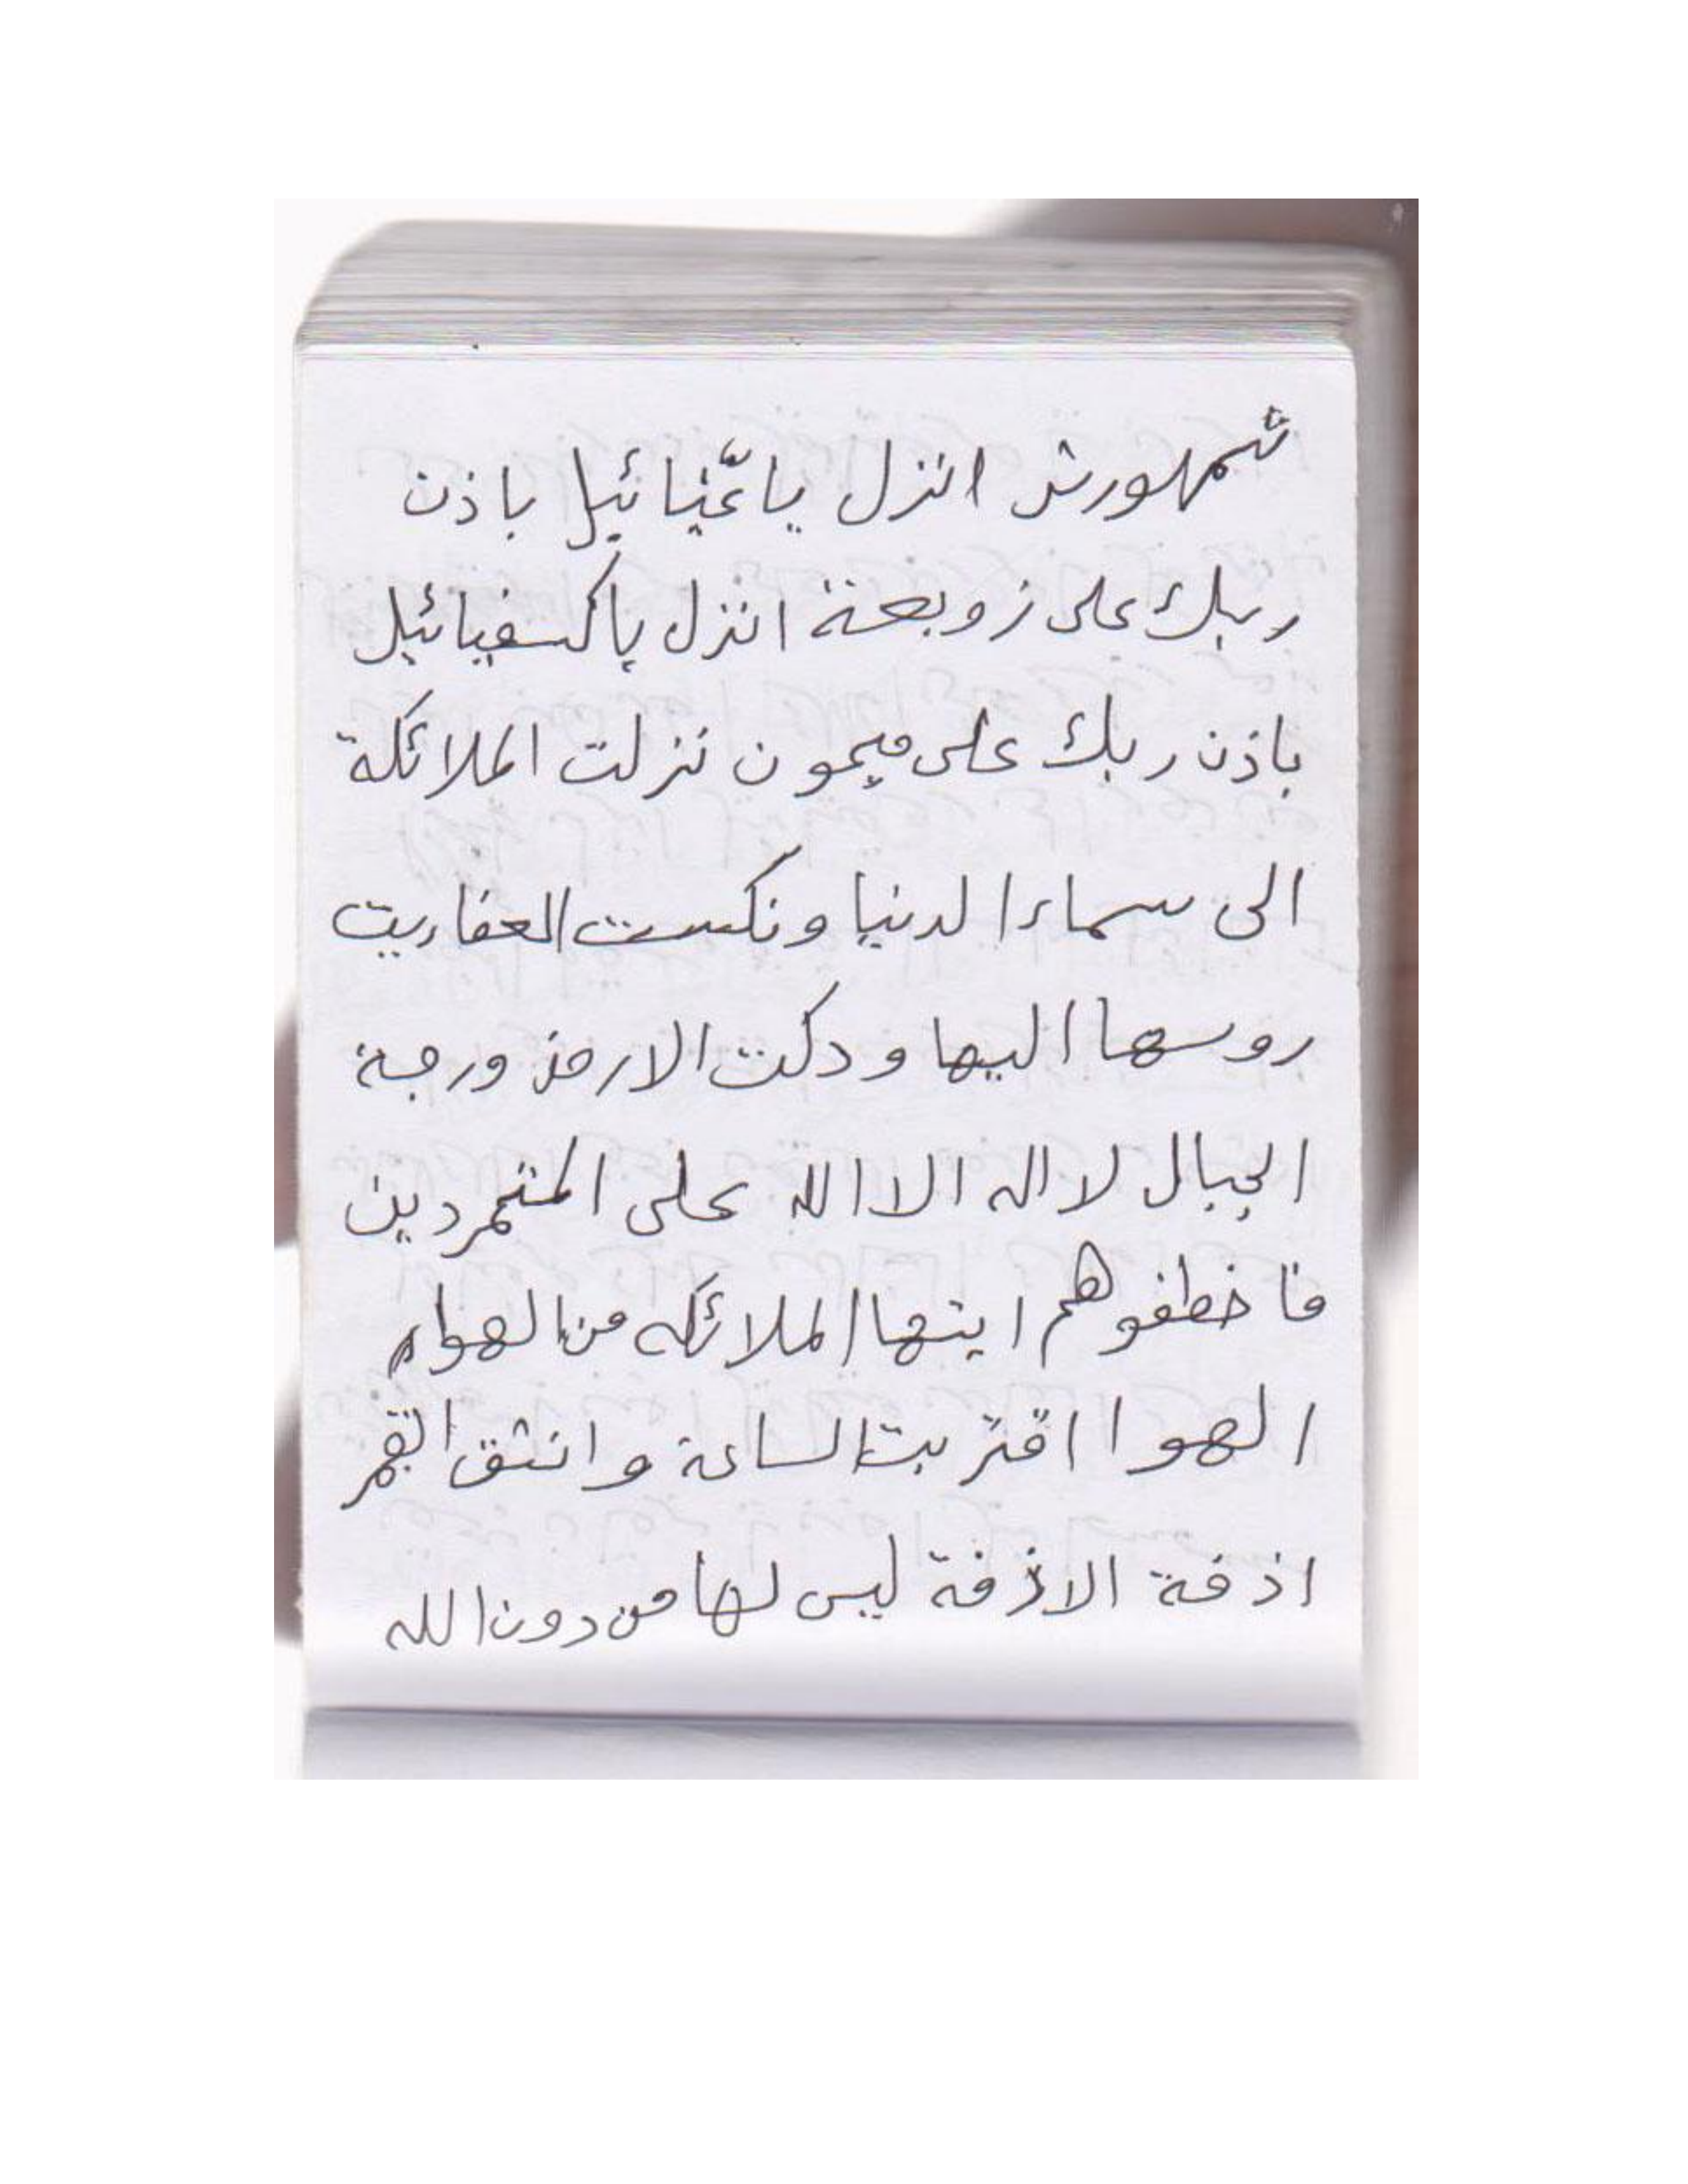 شمهورش انزل يا عنيائيل باذن
ربك على زوبعة انزل ياكسفيائيل
باذن ربك على ميمون نزلت الملائكة
الى سماء الدنيا ونكست العفاريت
روسها اليها ودكت الارض ورجة
الجبال لا اله الا الله على المتمردين
فاخطفوهم ايتها الملائكه من الهواء
الهوا اقتربت الساعة وانشق القمر
اذفة الاذفة ليس لها من دون الله